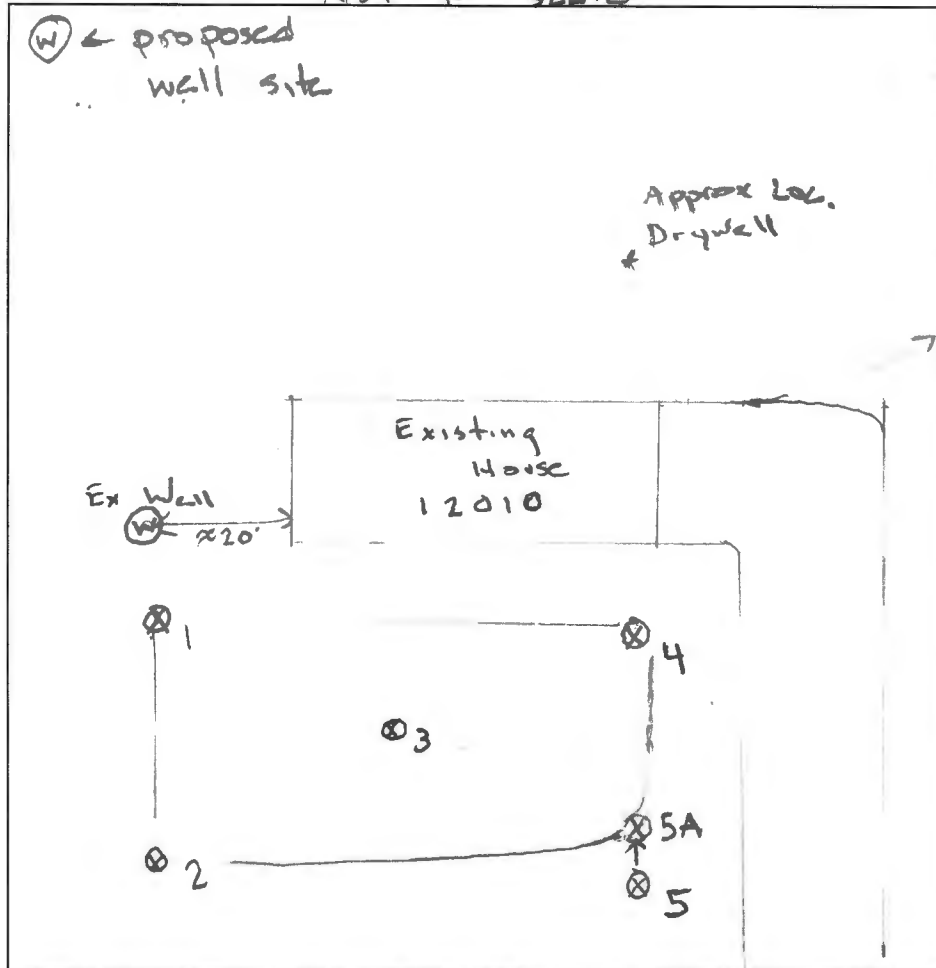 W ← proposed
well site
Approx Loc.
Drywell
Existing
House
12010
Ex Well
W
≈20'
1
4
3
5A
2
5